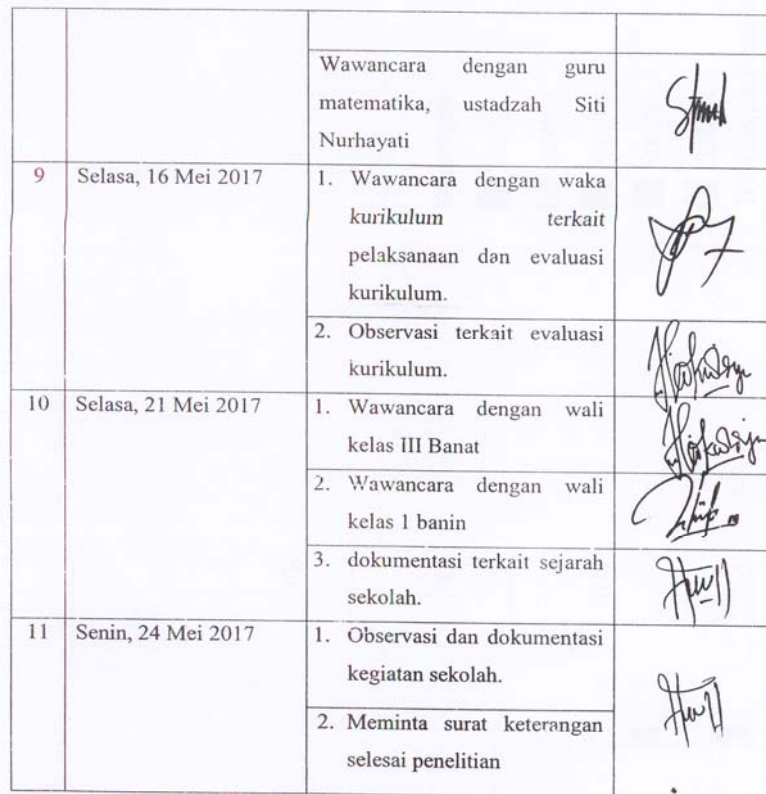 Wawancara dengan guru
matematika, ustadzah Siti
Nurhayati
9 Selasa, 16 Mei 2017 1. Wawancara dengan waka
kurikulum terkait
pelaksanaan dan evaluasi
kurikulum.
2. Observasi terkait evaluasi
kurikulum.
10 Selasa, 21 Mei 2017 1. Wawancara dengan wali
kelas III Banat
2. Wawancara dengan wali
kelas 1 banin
3. dokumentasi terkait sejarah
sekolah.
11 Senin, 24 Mei 2017 1. Observasi dan dokumentasi
kegiatan sekolah.
2. Meminta surat keterangan
selesai penelitian